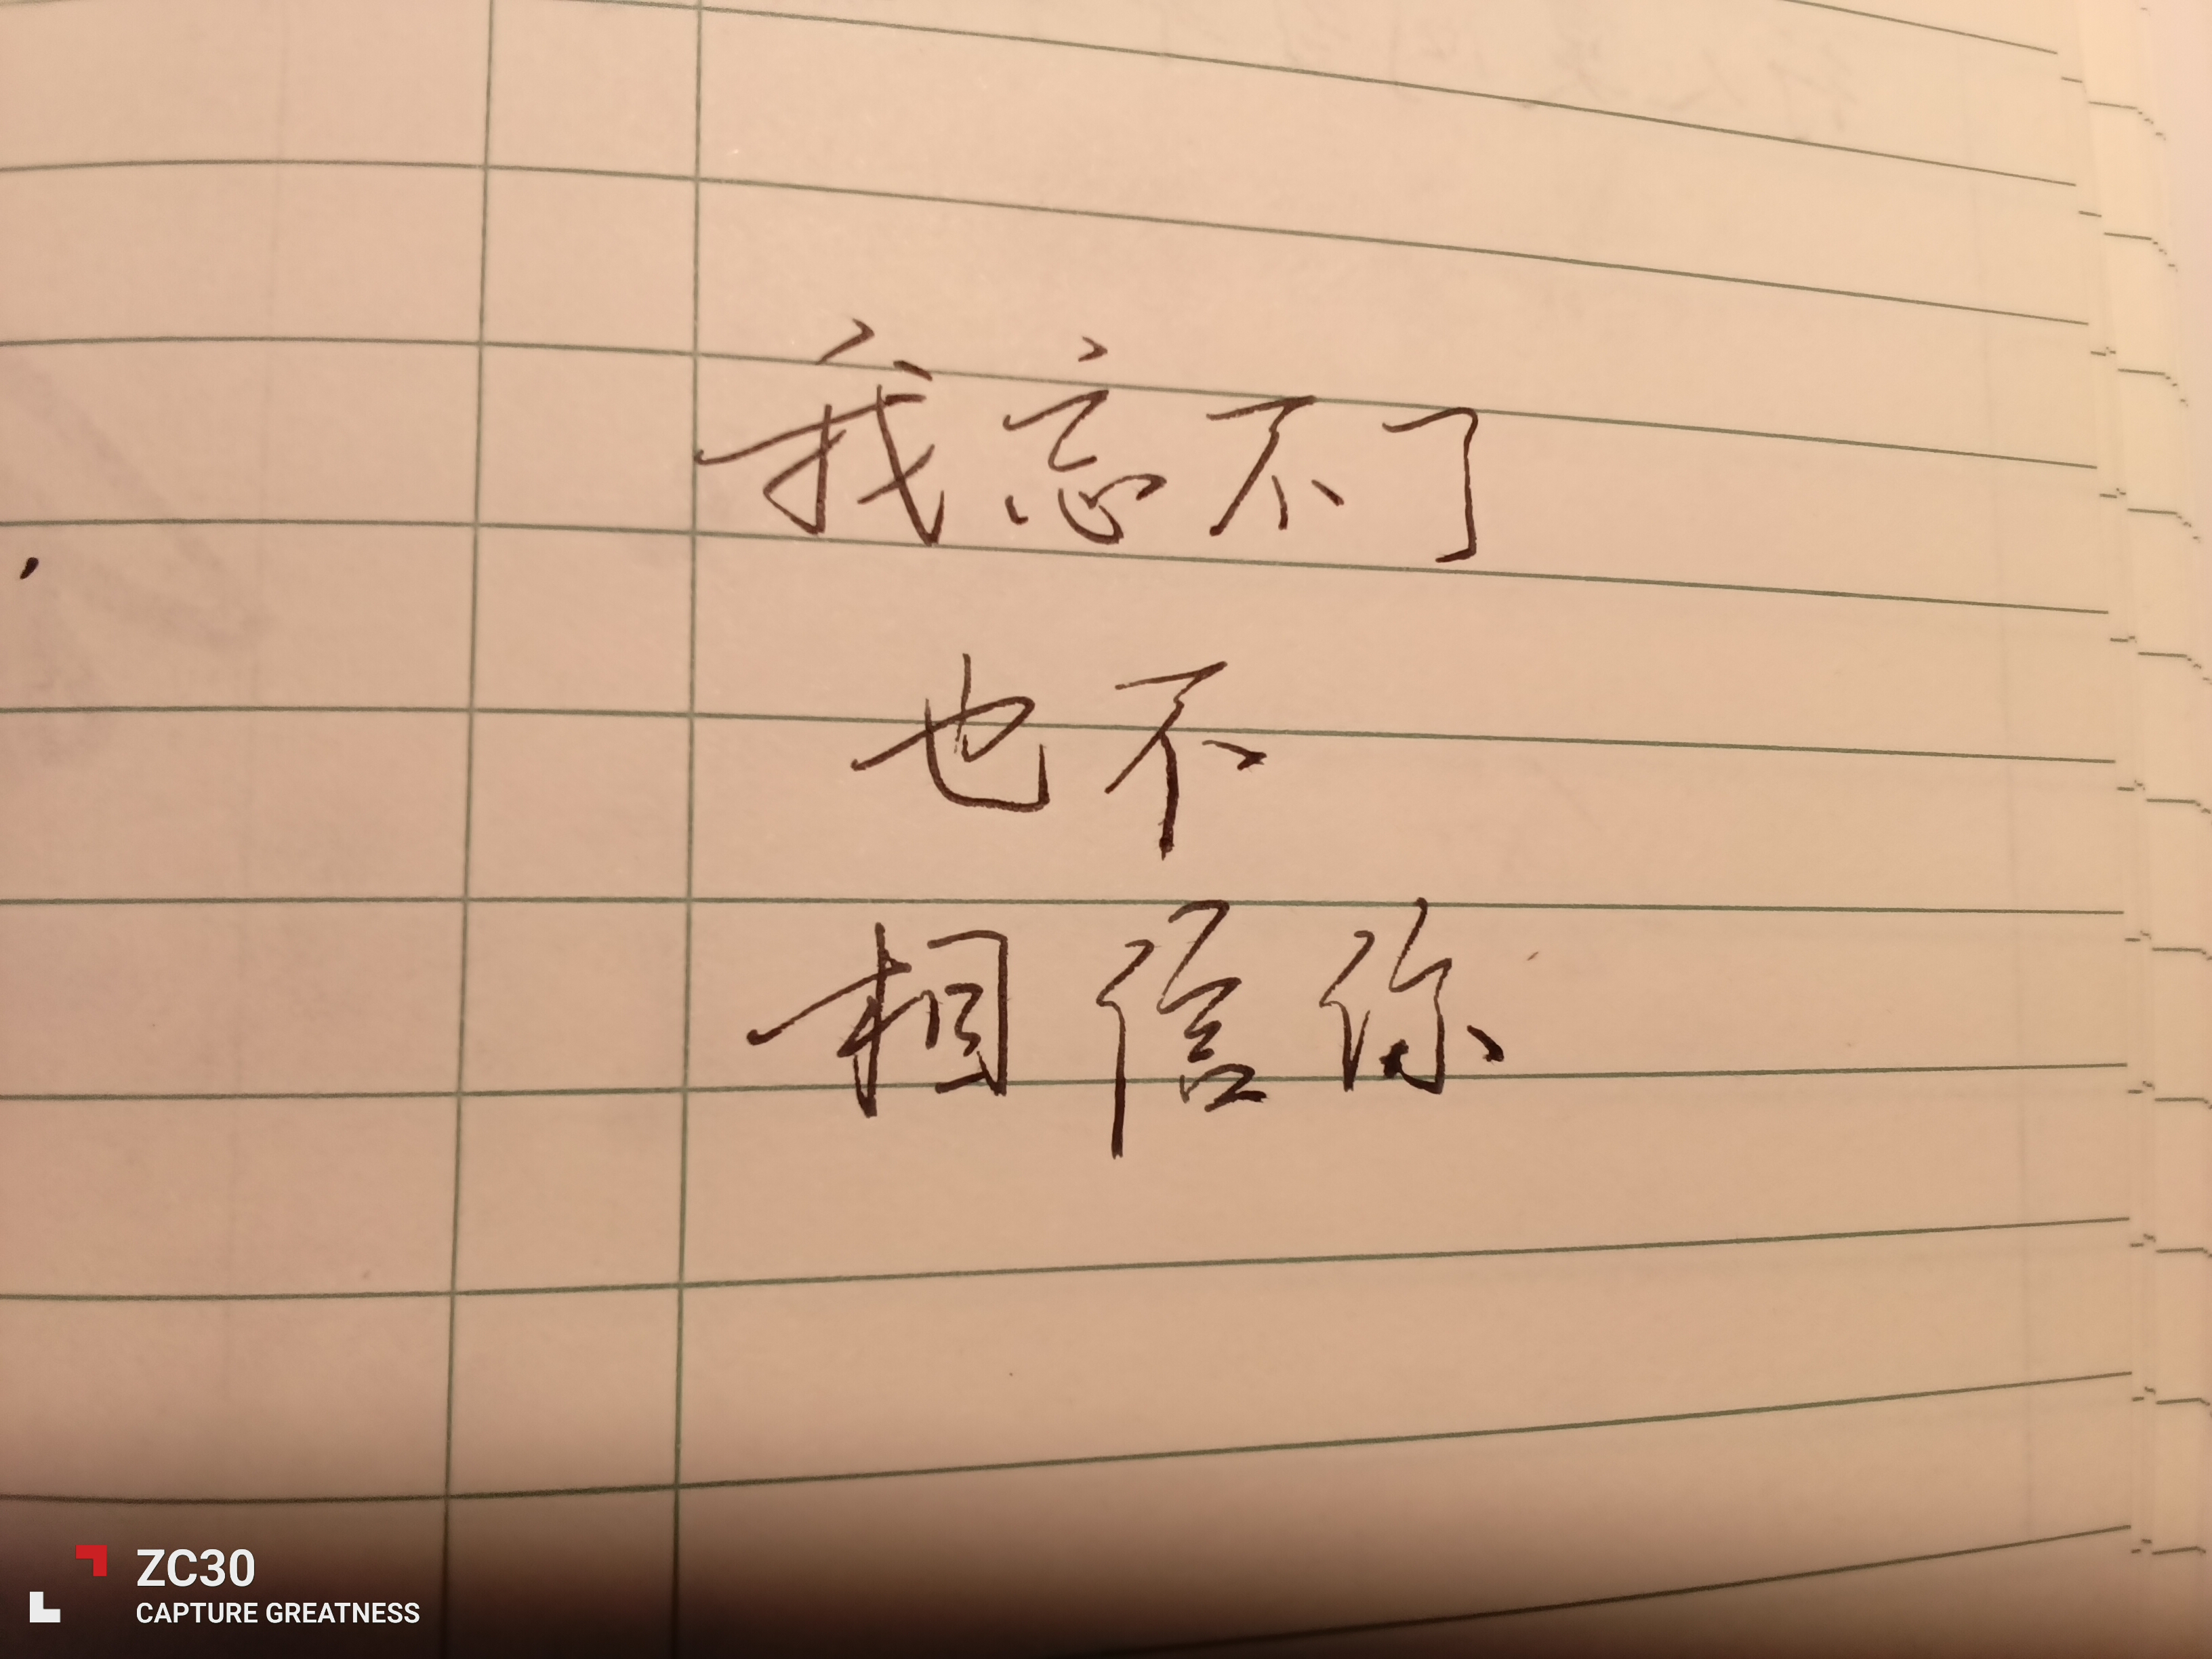 我忘不了
也不
相信你
ZC30
CAPTURE GREATNESS